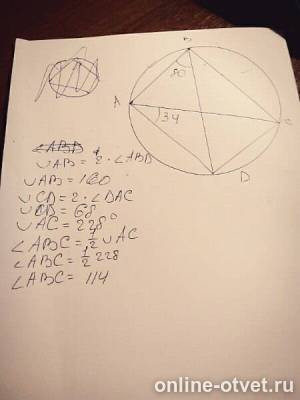 B
80
A
34
C
D
∠ABD
∪AB = 2·∠ABD
∪AB = 160
∪CD = 2·∠DAC
∪CD = 68
∪AC = 228°
∠ABC = 1/2 ∪AC
∠ABC = 1/2 228
∠ABC = 114
online-otvet.ru